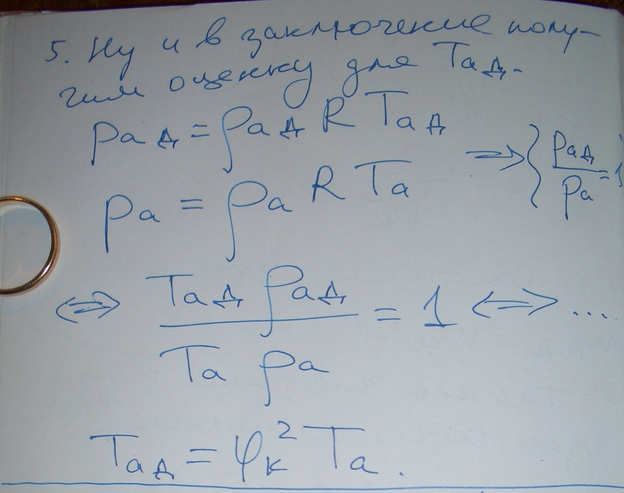 5. Ну и в заключение полу-
чим оценку для Tад.
pад = ρад R Tад
pа = ρа R Tа
=> { pад/pа = 1
<=> Tад ρад / Tа ρа = 1 <=> ...
Tад = φк² Tа.